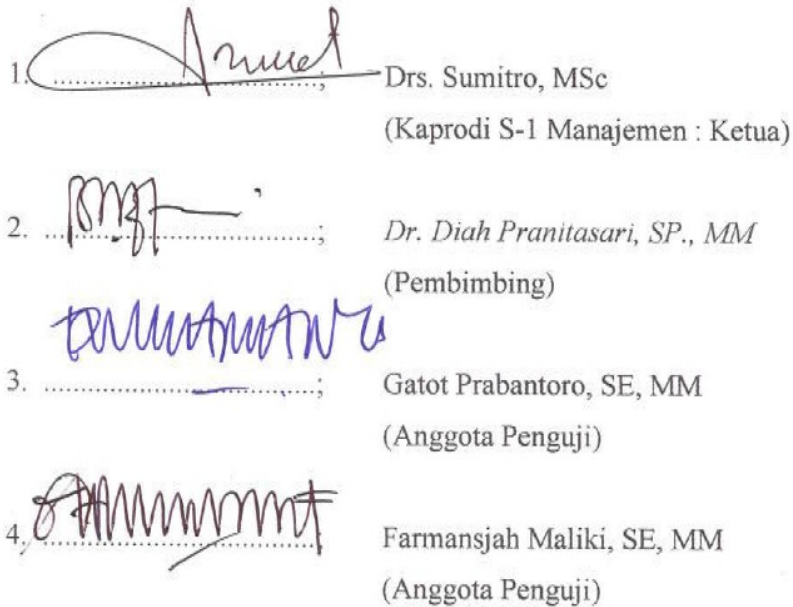 1. ....................; Drs. Sumitro, MSc
(Kaprodi S-1 Manajemen : Ketua)
2. ....................; Dr. Diah Pranitasari, SP., MM
(Pembimbing)
3. ....................; Gatot Prabantoro, SE, MM
(Anggota Penguji)
4. ....................; Farmansjah Maliki, SE, MM
(Anggota Penguji)